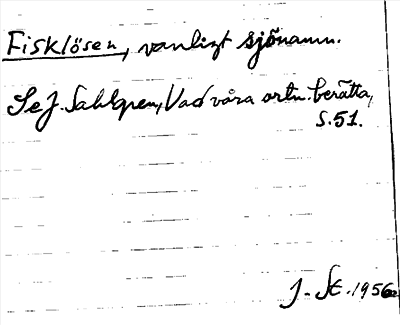 Fisklösen, vanligt sjönamn.
Se J. Sahlgren, Vad våra ortn. berätta,
s. 51.
J. St. 1956